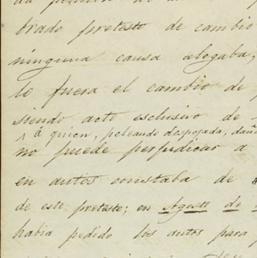 brado pretesto de cambio
ninguna causa alegaba,
lo fuera el cambio de
siendo acto esclusivo de
á quien, peleando despojada,
no puede perjudicar a
en autos constaba de
de este pretesto; en Agosto de
habia pedido los autos para